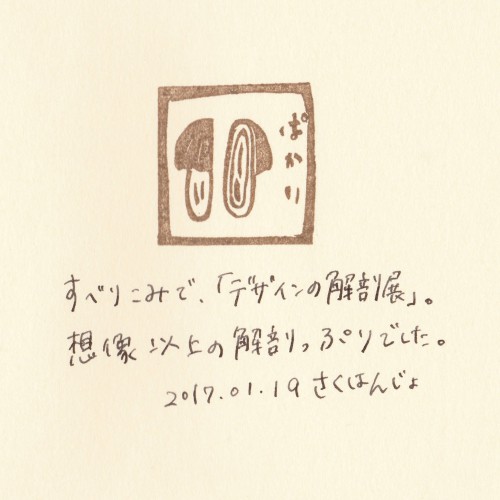 ぱかり
すべりこみで、「デザインの解剖展」。
想像以上の解剖っぷりでした。
2017.01.19 さくはんじょ